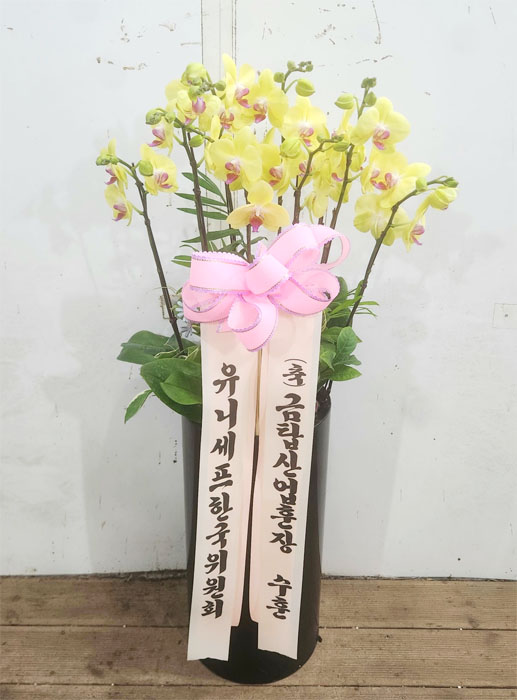 (축) 금탑산업훈장 수훈
유니세프한국위원회